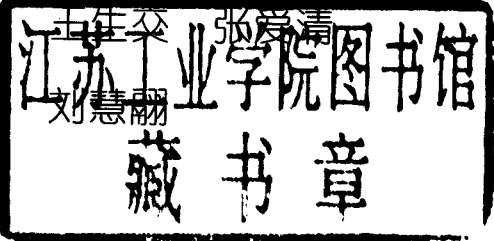 王生交 张爱清
江苏工业学院图书馆
刘慧翮
藏书章